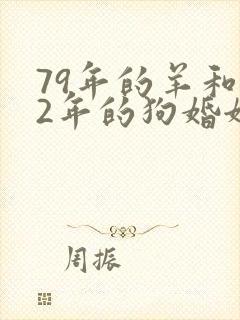 79年的羊和
2年的狗婚
周振